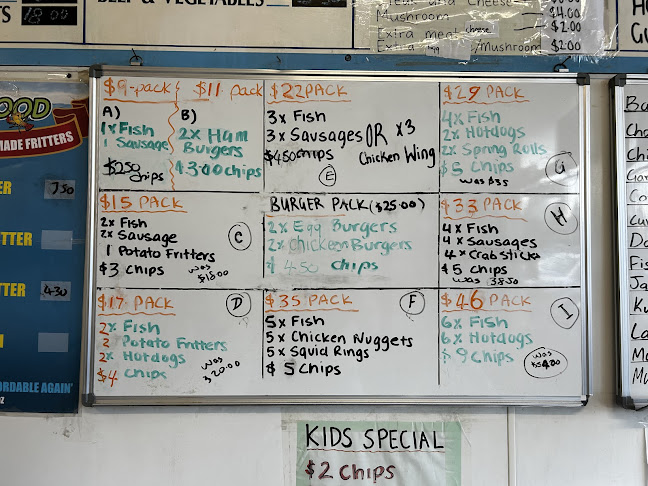 TS 18.00
BEEF & VEGETABLES
Meat and Cheese
Mushroom $4.00
Extra meat cheese $2.00
Extra egg /Mushroom $2.00
$9-pack
A)
1x Fish
1 Sausage
$2.50
chips
$11 pack
B)
2x Ham
Burgers
$3.00 chips
$22 PACK
3x Fish
3x Sausages
$4.50 chips
OR x3
Chicken Wing
E
$29 PACK
4x Fish
2x Hotdogs
2x Spring Rolls
$5 Chips
was $35
G
$15 PACK
2x Fish
2x Sausage
1 Potato Fritters
$3 chips
was
$18.00
C
BURGER PACK ($25.00)
2x Egg Burgers
2x Chicken Burgers
$ 4.50 chips
$33 PACK
4x Fish
4x Sausages
4x Crab sticks
$5 chips
was 38.50
H
$17 PACK
2x Fish
2 Potato Fritters
2x Hotdogs
$4 chips
was
$20.00
D
$35 PACK
5x Fish
5x Chicken Nuggets
5x Squid Rings
$ 5 Chips
F
$46 PACK
6x Fish
6x Hotdogs
$ 9 Chips
was
$54.00
I
OOD
MADE FRITTERS
ER 7.50
TTER
TTER 4.30
ORDABLE AGAIN'
KIDS SPECIAL
$2 Chips